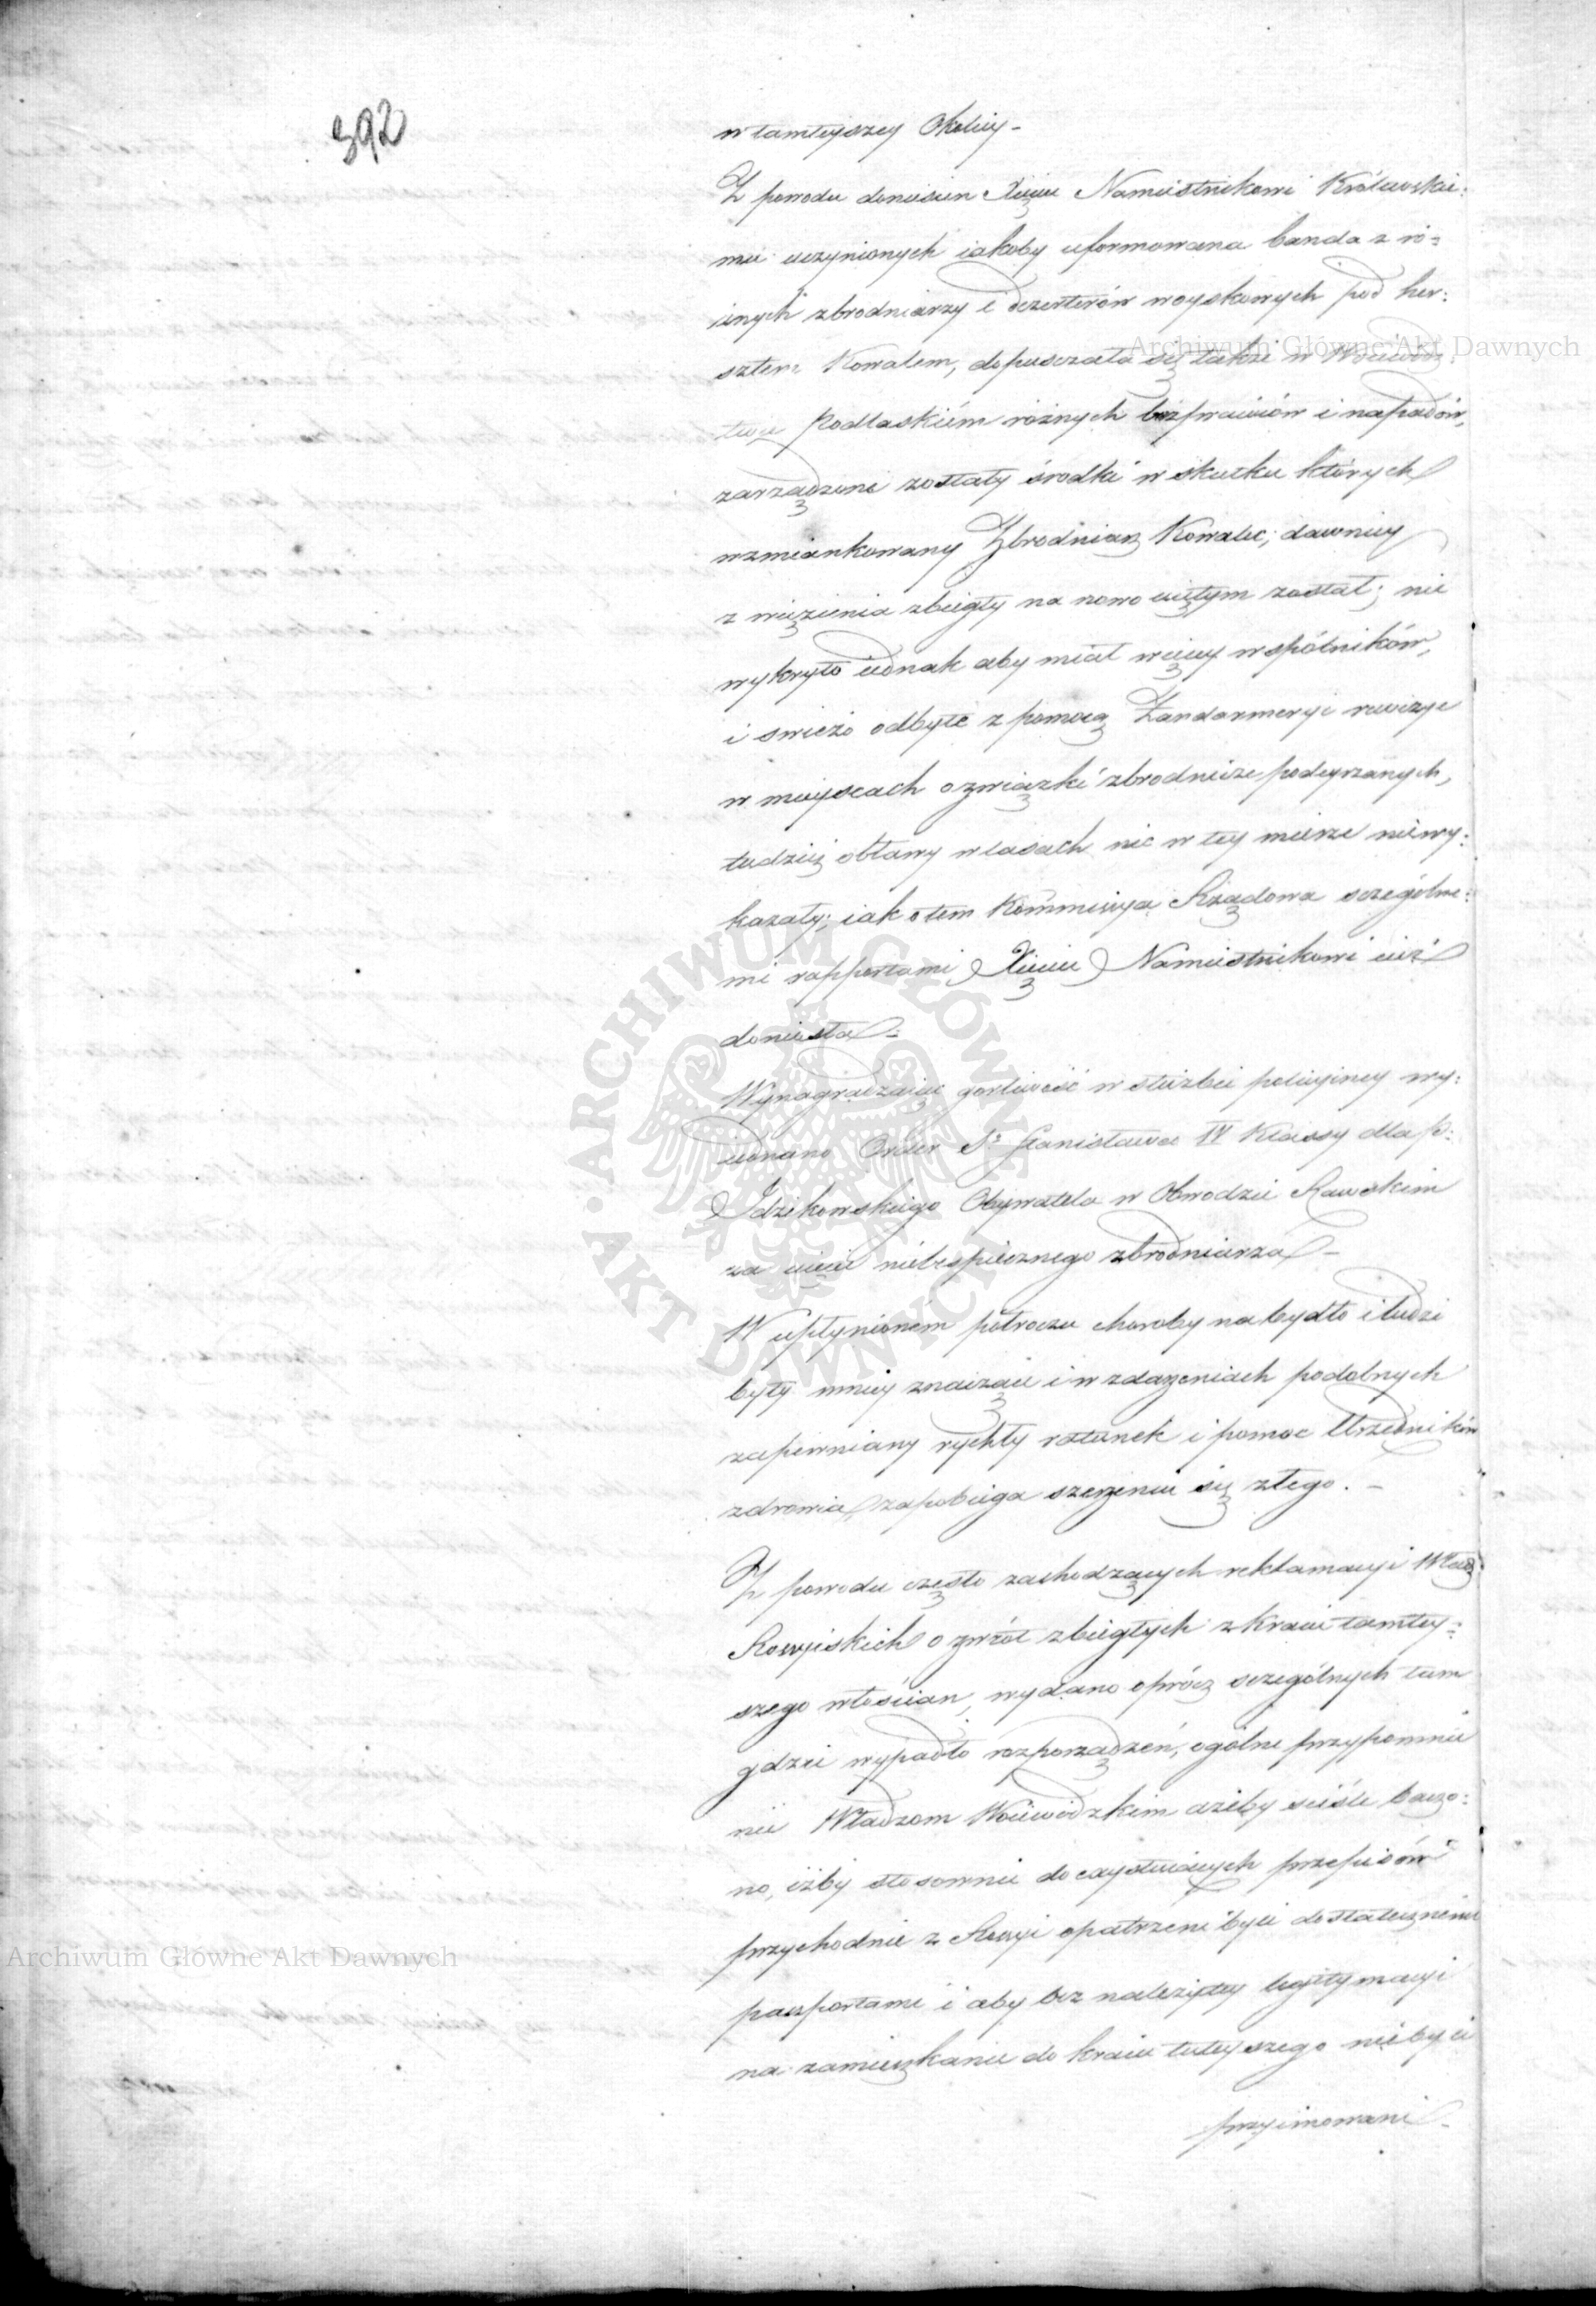 392
w tamteyszey Okolicy -
Z powodu doniesień Xięciu Namiestnikowi Królewskie:
mu uczynionych iakoby uformowana banda z ró=
żnych zbrodniarzy i dezerterów woyskowych pod her:
sztem Kowalem, dopuszczała się także w Woiewódz:
twie Podlaskiém różnych bezprawiów i napadów,
zarządzone zostały środki w skutku których
wzmiankowany Zbrodniarz Kowalec, dawniey
z więzienia zbiegły na nowo uiętym został; nie
wykryto iednak aby miał więcey wspólników,
i swieżo odbyte z pomocą Żandarmeryi rewizye
w mieyscach o związki zbrodnicze podeyrzanych,
tudzież obławy w lasach nic w tey mierze niewy:
kazały; iak o tem Kommissya Rządowa szczególne:
mi rapportami Xięciu Namiestnikowi iuż
doniosła -
Wynagradzaiąc gorliwość w służbie policyiney wy:
iednano Order Sgo Stanisława IV Klassy dla P:
Idzikowskiego Obywatela w Obwodzie Rawskim
za uięcie niebespiecznego zbrodniarza -
W upłynioném półroczu choroby na bydło i ludzi
były mniey znaczące i w zdarzeniach podobnych
zapewniany rychły ratunek i pomoc Urzędników
zdrowia, zapobiega szerzeniu się złego. -
Z powodu często zachodzących reklamacyi Władz
Rossyiskich o zwrót zbiegłych z Kraiu tamtey:
szego włościan, wydano oprócz szczególnych tam
gdzie wypadło rozporządzeń, ogólne przypomnie
nie Władzom Woiewódzkim ażeby ściśle baczo:
no, iżby stosownie do exystuiących przepisów
przychodnie z Rossyi opatrzeni byli dostatecznemi
paszportami i aby bez należytey legitymacyi
na zamieszkanie do kraiu tuteyszego nie byli
przyimowani -
Archiwum Główne Akt Dawnych
Archiwum Główne Akt Dawnych
ARCHIWUM GŁÓWNE AKT DAWNYCH